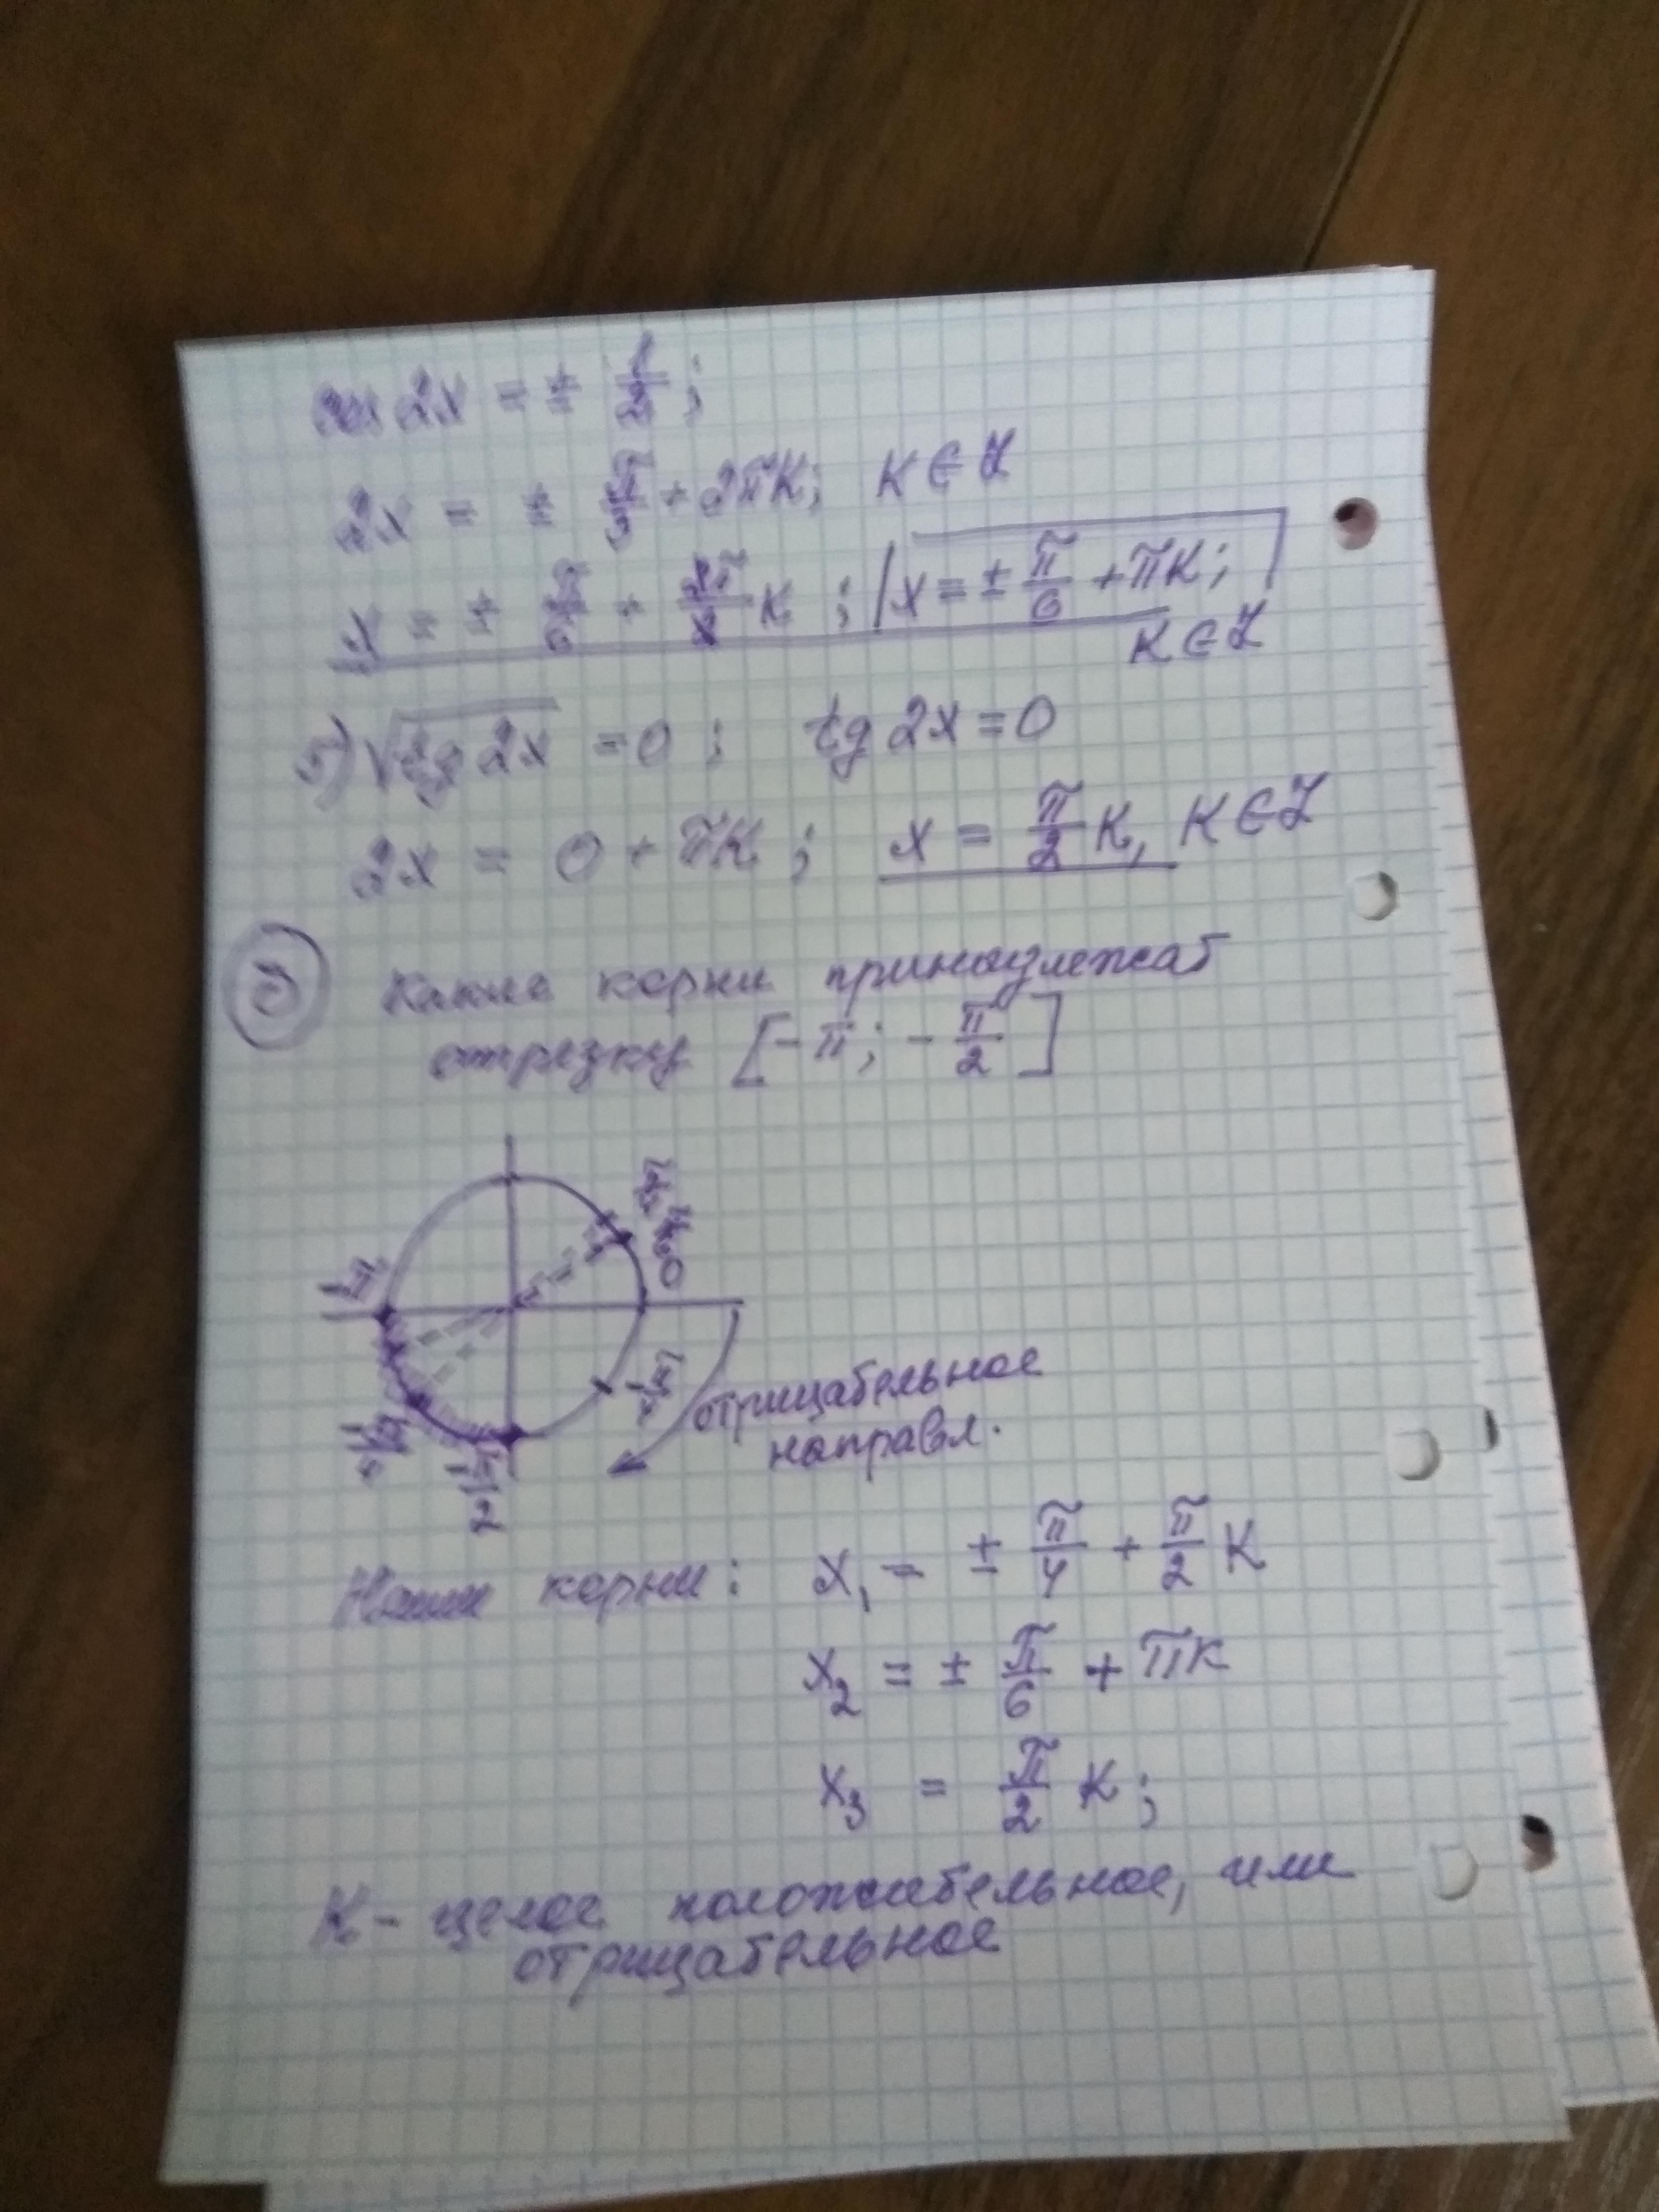 cos 2x = ± 1/2 ;
2x = ± π/3 + 2πK; K ∈ Z
x = ± π/6 + 2π/2 K ; x = ± π/6 + πK;
K ∈ Z
5) √(tg 2x) = 0 ; tg 2x = 0
2x = 0 + πK ; x = π/2 K, K ∈ Z
Какие корни принадлежат
отрезку [-π; -π/2]
0
-π
отрицательное
направл.
-π/2
Наши корни: x₁ = ± π/4 + π/2 K
x₂ = ± π/6 + πK
x₃ = π/2 K ;
K - целое положительное, или
отрицательное